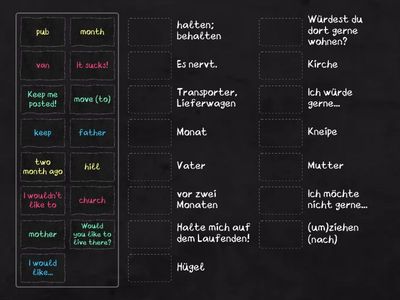 pub
month
van
It sucks!
Keep me
posted!
move (to)
keep
father
two
month ago
hill
I wouldn't
like to
church
mother
Would
you like to
live there?
I would
like...
halten;
behalten
Es nervt.
Transporter,
Lieferwagen
Monat
Vater
vor zwei
Monaten
Halte mich auf
dem Laufenden!
Hügel
Würdest du
dort gerne
wohnen?
Kirche
Ich würde
gerne...
Kneipe
Mutter
Ich möchte
nicht gerne...
(um)ziehen
(nach)